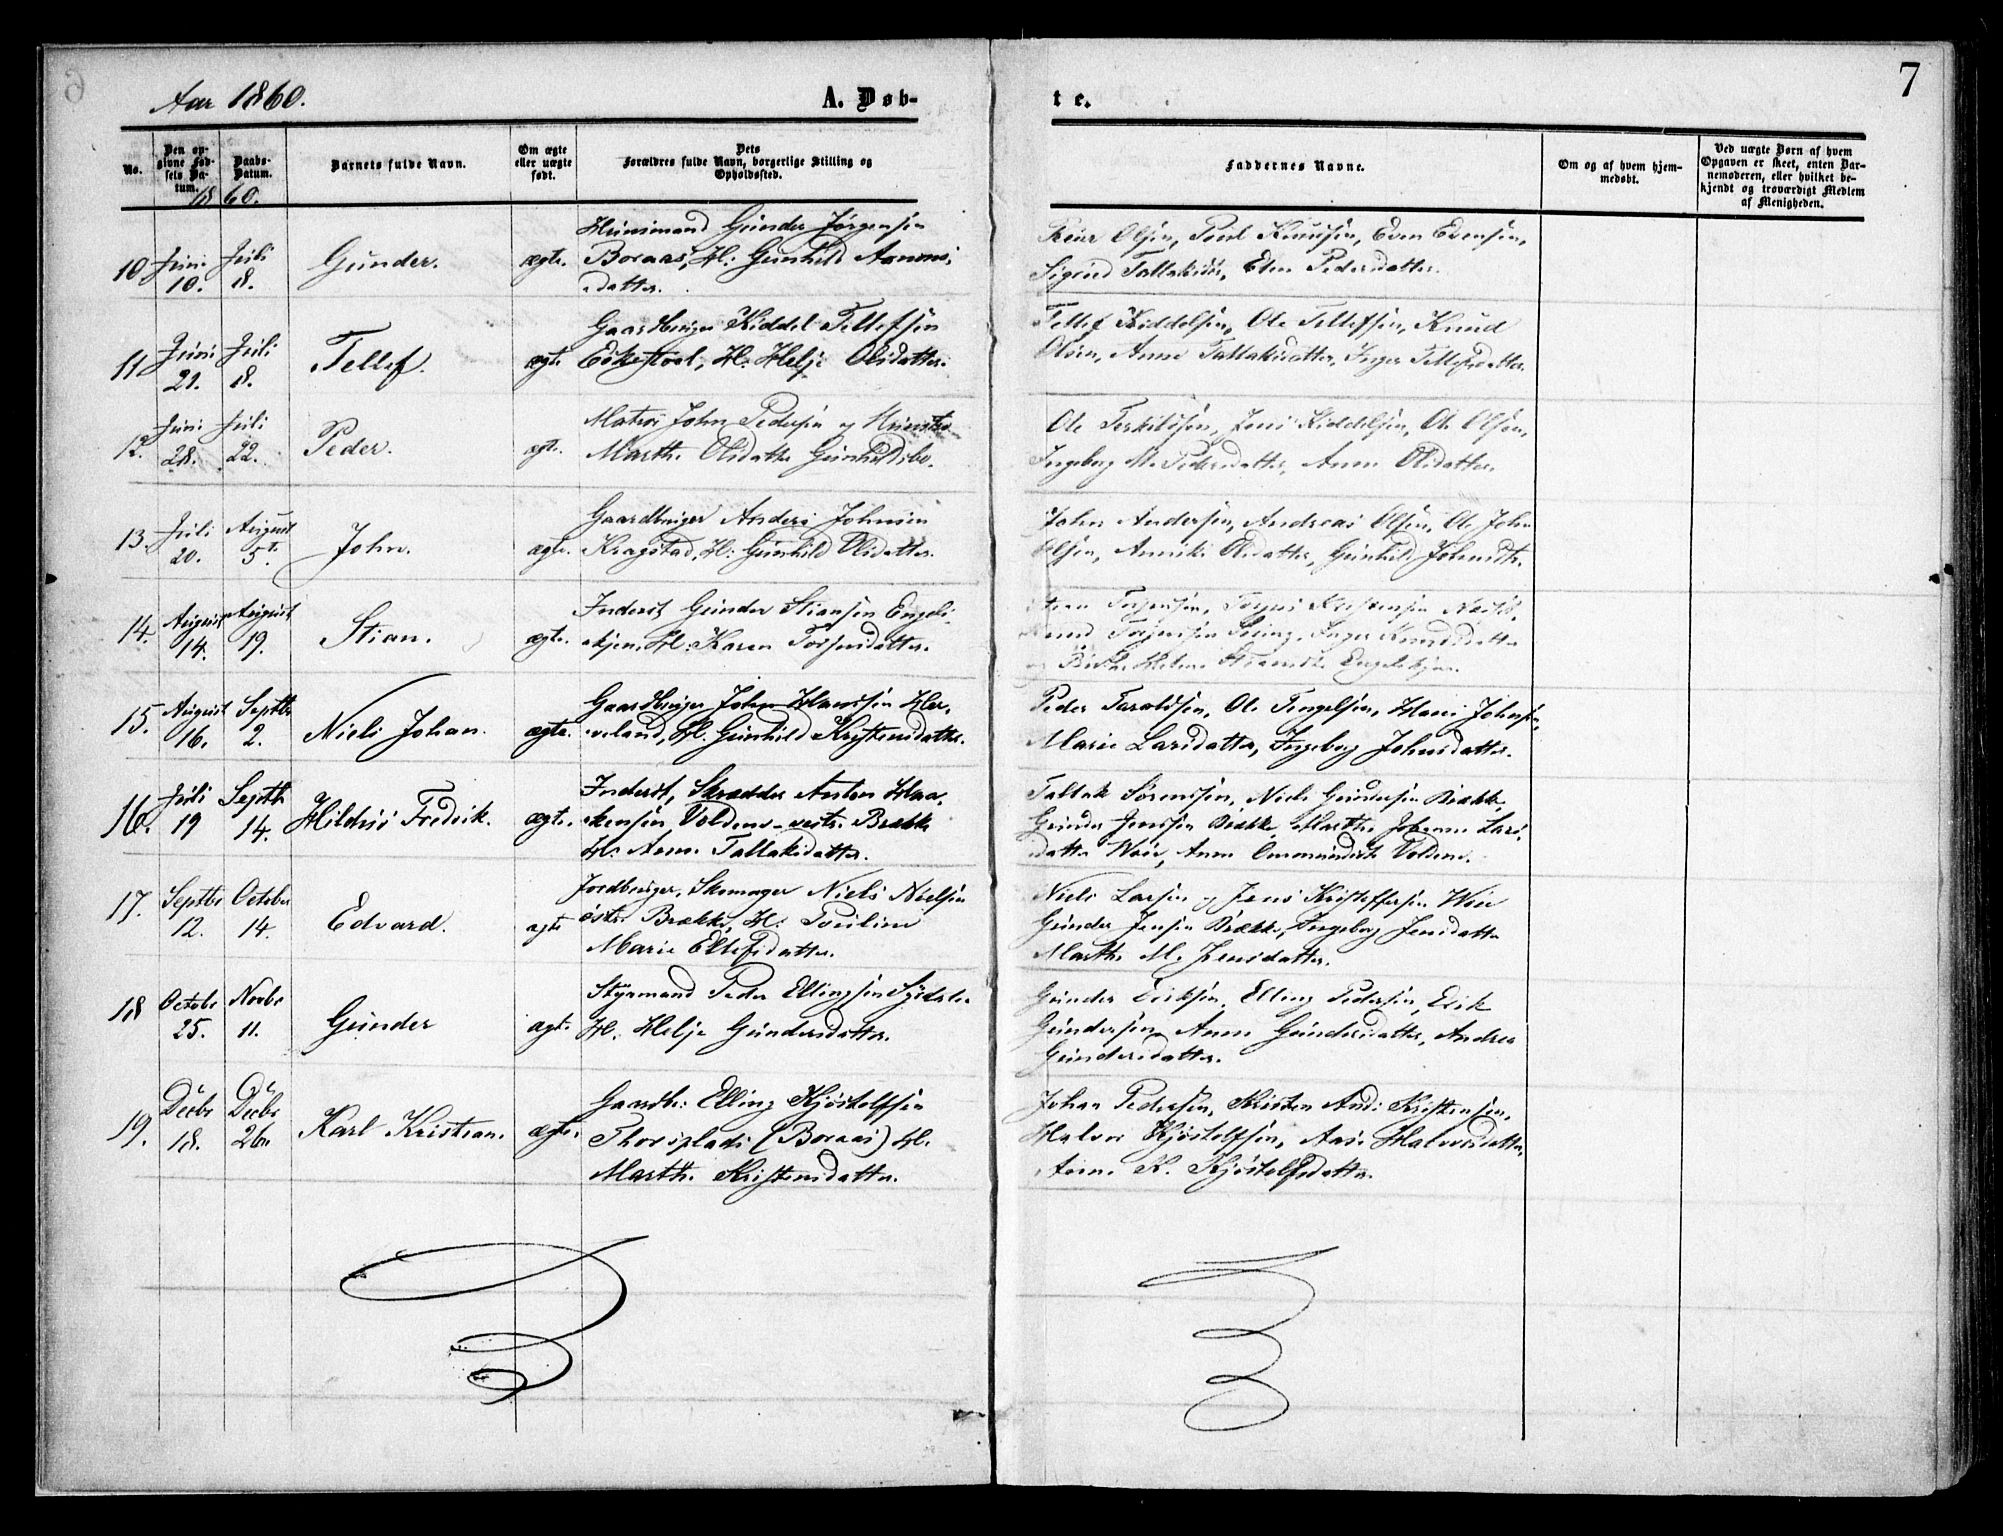 Aar 1860.
A. Døb-
te.
7
No.
Den opgivne Fødsels Datum.
Daabs-Datum.
1860.
Barnets fulde Navn.
Om ægte eller uægte født.
Dets Forældres fulde Navn, borgerlige Stilling og Opholdssted.
Faddernes Navne.
Om og af hvem hjemmedøbt.
Ved uægte Børn af hvem Opgaven er skeet, enten Barnemoderen, eller hvilket bekjendt og troværdigt Medlem af Menigheden.
10 Juni 10. Juli 8. Gunder. ægte.
Huusmand Gunder Jørgensen
Boraas, H: Gunhild Aanons-
datter.
Olsen, Poul Knudsen, Even Evensen,
Sigrid Tallaksdtr, Elen Pedersdatter.
11 Juni 21. Juli 8. Tellef. ægte.
Gaardbruger Kiddel Tellefsen
Eikestøl, H. Helje Olsdatter.
Tellef Kiddelsen, Ole Tellefsen, Knud
Olsen, Anne Tallaksdatter, Inger Tellefsdatter.
12. Juni 28. Juli 22. Peder. ægte.
Matros John Pedersen og Hustro
Marthe Olsdatter Gunhildsbo.
Ole Terkildsen, Jens Kiddelsen, Ole Olsen,
Ingeborg M. Pedersdatter, Anne Olsdatter.
13. Juli 20. August 5t. John. ægte.
Gaardbruger Anders Johnsen
Kragstad, H: Gunhild Olsdatter.
John Andersen, Andreas Olsen, Ole John
Olsen, Annike Olsdatter, Gunhild Johnsdtr.
14. August 14. August 19. Stian. ægte.
Inderst Gunder Stiansen Engels-
kjen, H: Karen Torjusdatter.
Torjussen, Torjus Kristensen
Torjussen, Inger Knudsdatter
Helene Engelskjen.
15. August 16. Septbr 2. Niels Johan. ægte.
Gaardbruger John Hanssen Her-
veland, H. Gunhild Kristensdatter.
Peder Taraldsen, Ole Tengelsen, Hans Johnsen,
Marie Larsdatter, Ingeborg Johnsdatter.
16. Juli 19 Septbr 14. Hildus Fredrik. ægte.
Inderst, Skrædder Anton Haa-
kensen Voldene vestre Brække
H. Anne Tallaksdatter.
Tallak Sørenssen, Niels Gundersen Brække,
Gunder Jenssen Brække, Marthe Johanne Lars-
datter Woie, Anne Ommundsdtr Voldene.
17. Septbr 12. October 14. Edvard. ægte
Jordbruger, Skomager Niels Nielsen
østr. Brække, H. Pouline
Marie Ellefsdatter.
Niels Larsen og Jens Kristoffersen Woie
Gunder Jensen Brække, Ingeborg Jensdatter
Marthe M. Jensdatter.
18 Octobr 25. Novbr 11. Gunder ægte.
Styrmand Peder Ellingsen
H. Helje Gundersdatter.
Gunder Eriksen, Elling Pedersen, Erik
Gundersen Anne Gundersdatter, Andrea
Gundersdatter.
19. Decbr 18. Decbr 26de Karl Kristian. ægte.
Gaardbr: Elling Kjøstolfsen
Thorsplads (Boraas) H.
Marthe Kristensdatter.
Johan Pedersen, Kristen And: Kristensen,
Halvor Kjøstolfsen, Aase Halvorsdatter,
Anne K. Kjøstolfsdatter.